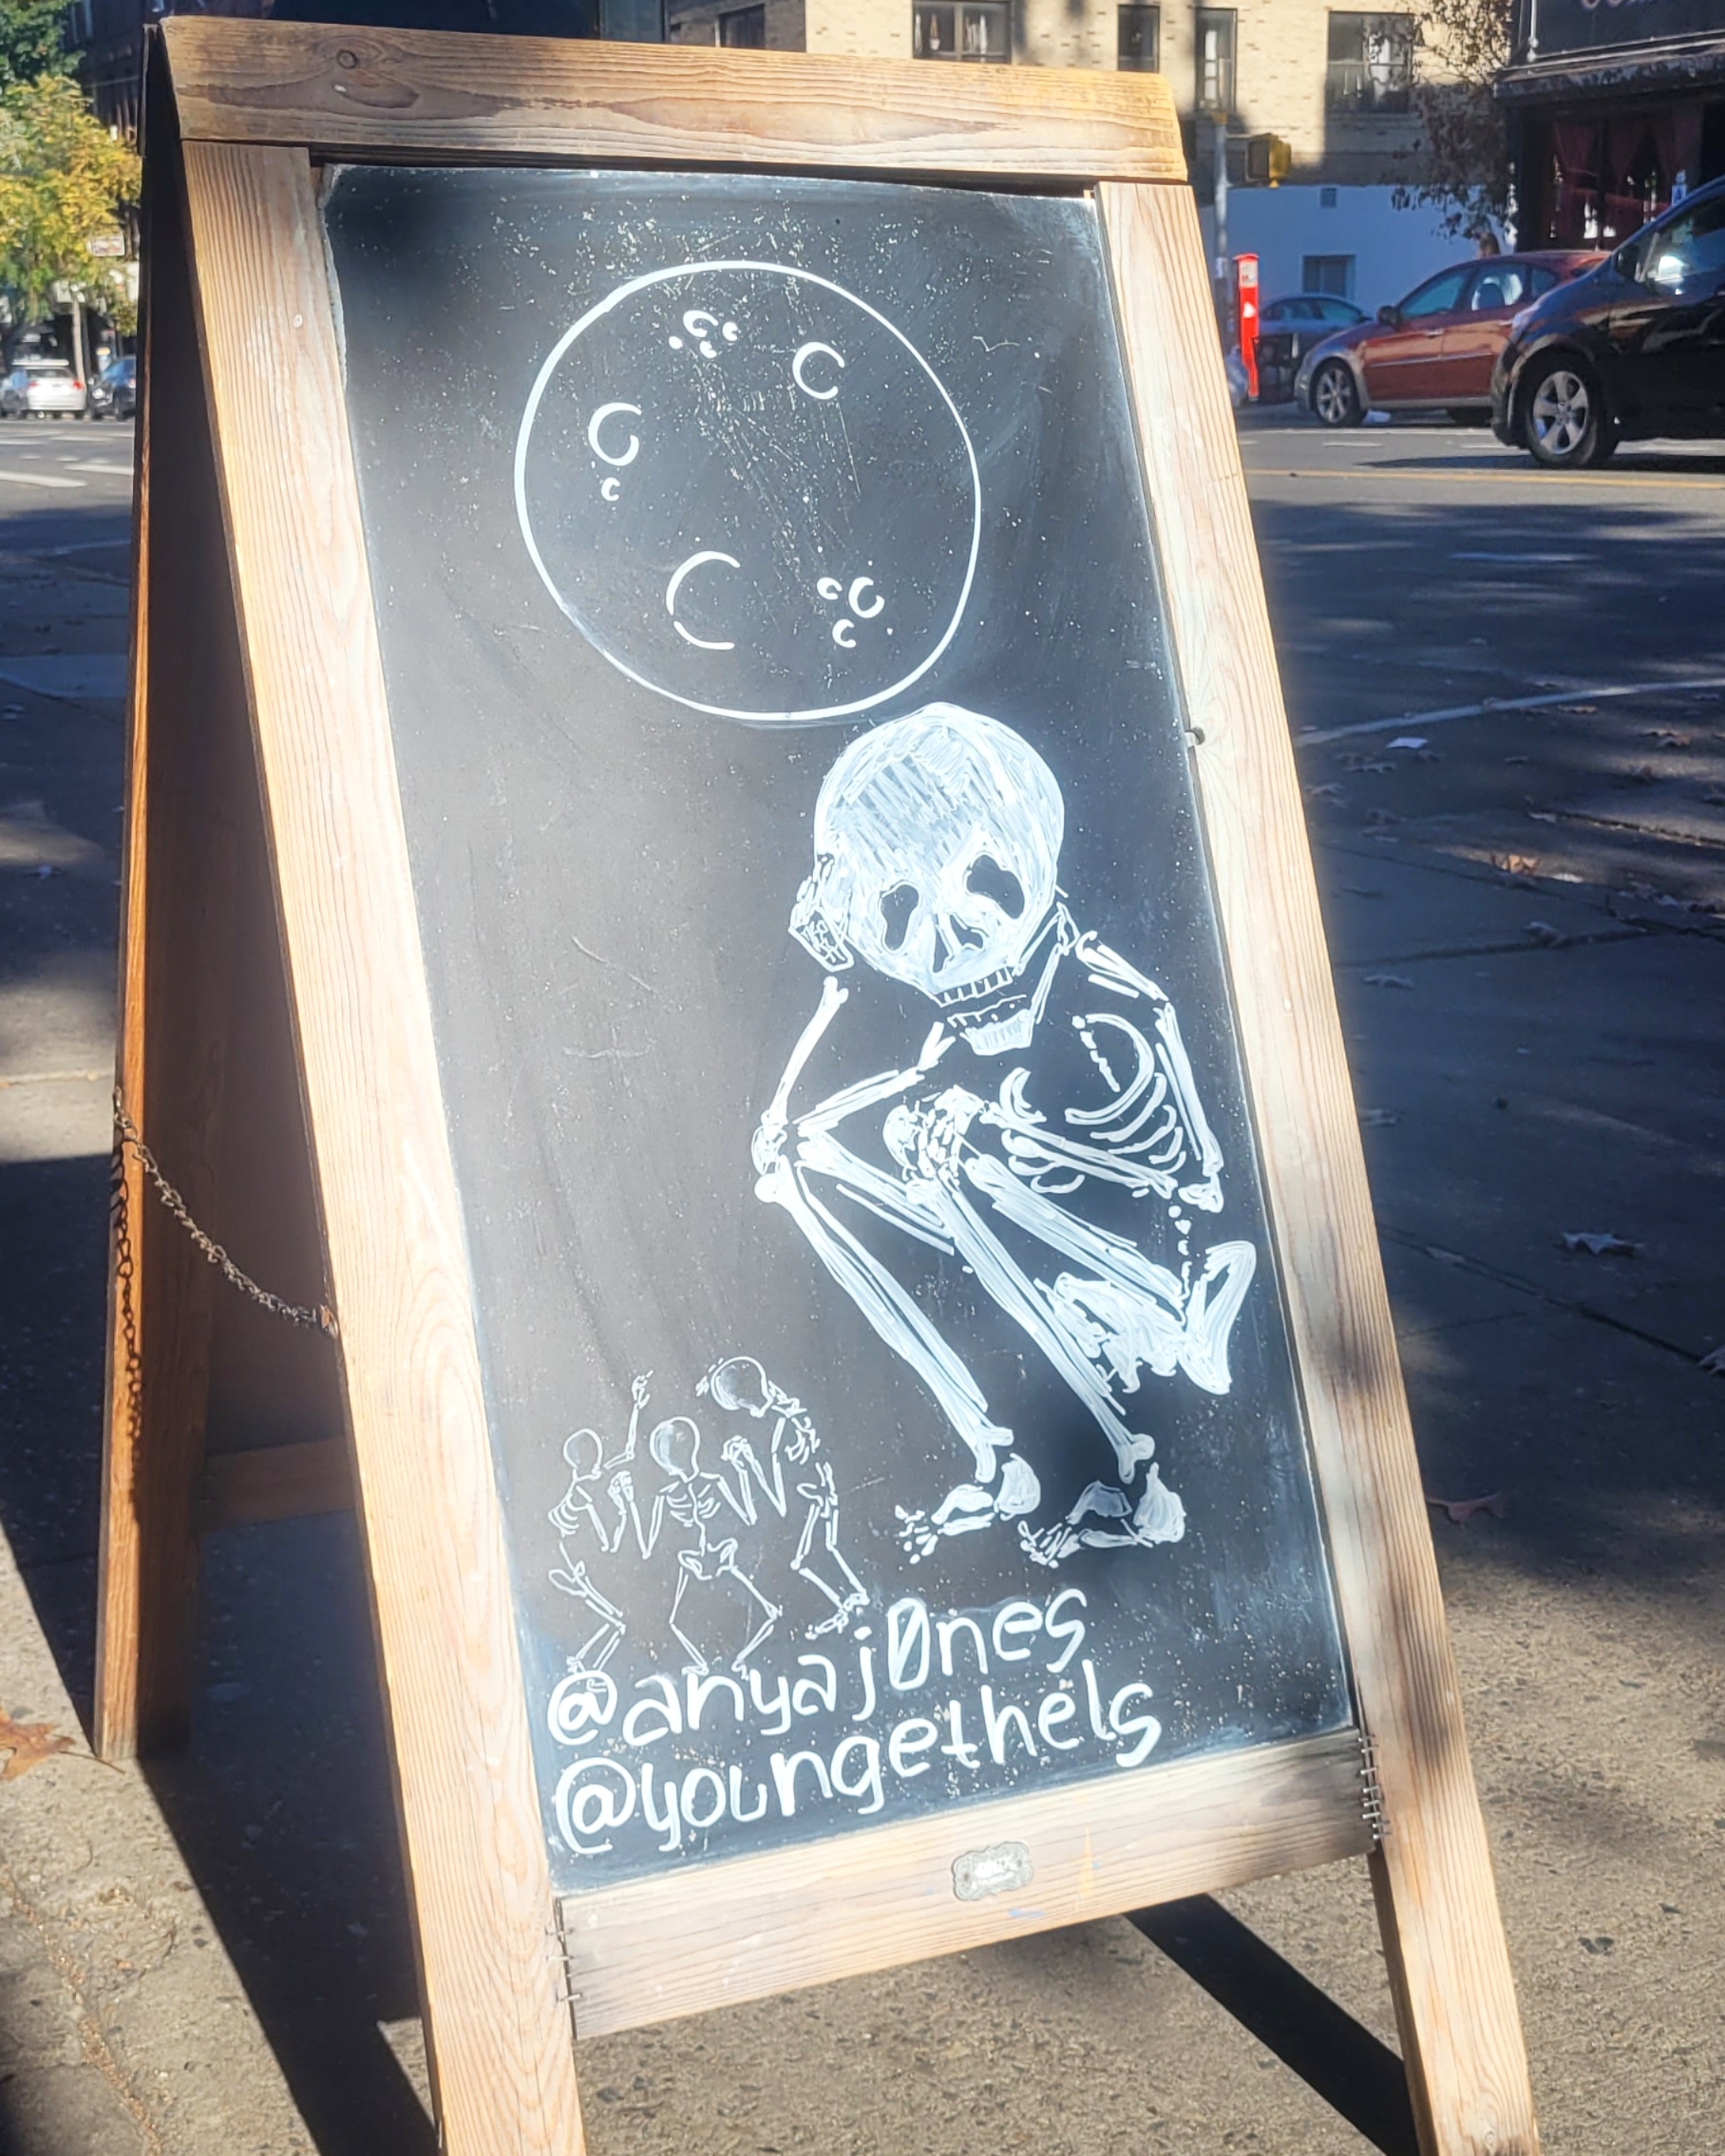 @anyaj0nes
@youngethels